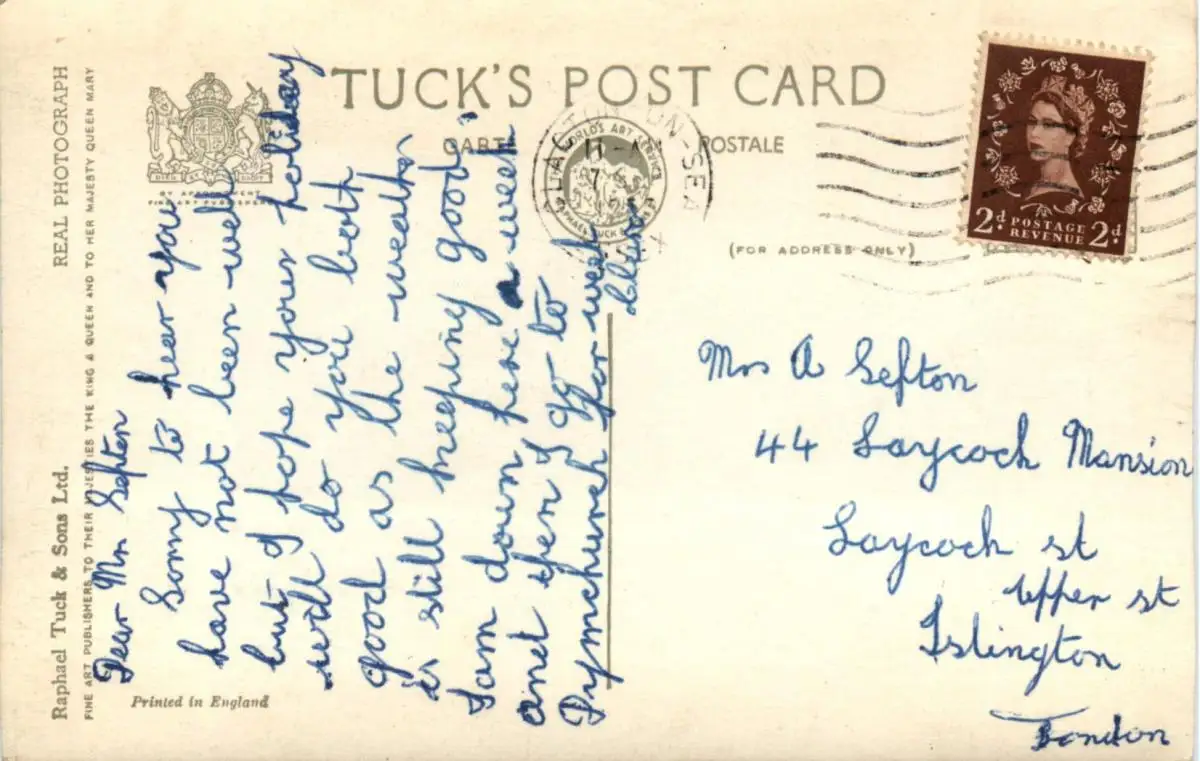 TUCK'S POST CARD
CARTE POSTALE
BY APPOINTMENT
FINE ART PUBLISHERS
(FOR ADDRESS ONLY)
CLACTON-ON-SEA
WORLD'S ART SERVICE
RAPHAEL TUCK &
2d POSTAGE REVENUE 2d
REAL PHOTOGRAPH
Raphael Tuck & Sons Ltd.
FINE ART PUBLISHERS TO THEIR MAJESTIES THE KING & QUEEN AND TO HER MAJESTY QUEEN MARY
Printed in England
Dear Mrs Sefton
Sorry to hear you
have not been well
but I hope your holiday
will do you both
good as the weather
is still keeping good,
I am down here a week
and then I go to
Dymchurch for week
Mrs A Sefton
44 Laycock Mansion
Laycock st
Upper st
Islington
London